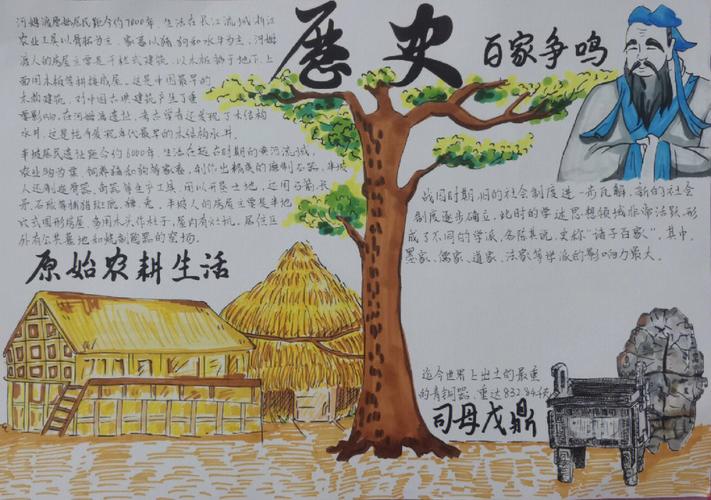 歷史
百家争鸣
河姆渡原始居民距今约7000年,生活在长江流域,浙江
农业工具以骨耜为主,家畜以猪、狗和水牛为主,河姆
渡人的房屋主要是干栏式建筑,以木桩插于地下,上
面用木板等拼接成屋,这是中国最早的
木构建筑,对中国古典建筑产生了重
要影响,在河姆渡遗址,考古学者还发现了木结构
水井,这是迄今发现年代最早的木结构水井。
半坡居民遗址距今约6000年,生活在
农业
人还制造骨器、角器等生产工具,用以开垦土地,还用石箭、长
穴式圆形房屋,多用木头作柱子,屋内有灶坑,居住区
外有公共墓地和烧制陶器的窑场。
原始农耕生活
战国时期,旧的社会制度进一步瓦解,新的社会
制度逐步确立,此时的学术思想领域非常活跃,形
成了不同的学派,各陈其说,史称“诸子百家”。其中,
墨家、儒家、道家、法家等学派的影响力最大。
迄今世界上出土的最重
的青铜器,重达832.84
司母戊鼎